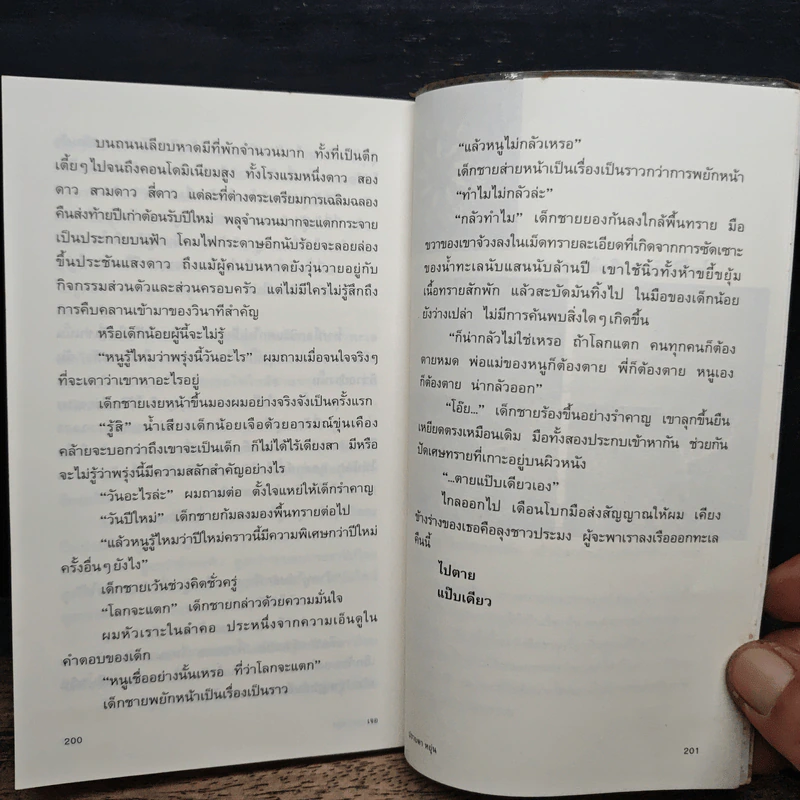 บนถนนเลียบหาดมีที่พักจำนวนมาก ทั้งที่เป็นตึก
เตี้ยๆ ไปจนถึงคอนโดมิเนียมสูง ทั้งโรงแรมหนึ่งดาว สอง
ดาว สามดาว สี่ดาว แต่ละที่ต่างตระเตรียมการเฉลิมฉลอง
คืนส่งท้ายปีเก่าต้อนรับปีใหม่ พลุจำนวนมากจะแตกกระจาย
เป็นประกายบนฟ้า โคมไฟกระดาษอีกนับร้อยจะลอยล่อง
ขึ้นประชันแสงดาว ถึงแม้ผู้คนบนหาดยังวุ่นวายอยู่กับ
กิจกรรมส่วนตัวและส่วนครอบครัว แต่ไม่มีใครไม่รู้สึกถึง
การคืบคลานเข้ามาของวินาทีสำคัญ
หรือเด็กน้อยผู้นี้จะไม่รู้
“หนูรู้ไหมว่าพรุ่งนี้วันอะไร” ผมถามเมื่อจนใจจริงๆ
ที่จะเดาว่าเขาหาอะไรอยู่
เด็กชายเงยหน้าขึ้นมองผมอย่างจริงจังเป็นครั้งแรก
“รู้สิ” น้ำเสียงเด็กน้อยเจือด้วยอารมณ์ขุ่นเคือง
คล้ายจะบอกว่าถึงเขาจะเป็นเด็ก ก็ไม่ได้ไร้เดียงสา มีหรือ
จะไม่รู้ว่าพรุ่งนี้มีความสลักสำคัญอย่างไร
“วันอะไรล่ะ” ผมถามต่อ ตั้งใจแหย่ให้เด็กรำคาญ
“วันปีใหม่” เด็กชายก้มลงมองพื้นทรายต่อไป
“แล้วหนูรู้ไหมว่าปีใหม่คราวนี้มีความพิเศษกว่าปีใหม่
ครั้งอื่นๆ ยังไง”
เด็กชายเว้นช่วงคิดชั่วครู่
“โลกจะแตก” เด็กชายกล่าวด้วยความมั่นใจ
ผมหัวเราะในลำคอ ประหนึ่งจากความเอ็นดูใน
คำตอบของเด็ก
“หนูเชื่ออย่างนั้นเหรอ ที่ว่าโลกจะแตก”
เด็กชายพยักหน้าเป็นเรื่องเป็นราว
200
“แล้วหนูไม่กลัวเหรอ”
เด็กชายส่ายหน้าเป็นเรื่องเป็นราวกว่าการพยักหน้า
“ทำไมไม่กลัวล่ะ”
“กลัวทำไม” เด็กชายยองก้นลงใกล้พื้นทราย มือ
ขวาของเขาจ้วงลงในเม็ดทรายละเอียดที่เกิดจากการซัดเซาะ
ของน้ำทะเลนับแสนนับล้านปี เขาใช้นิ้วทั้งห้าขยี้ขยุ้ม
เนื้อทรายสักพัก แล้วสะบัดมันทิ้งไป ในมือของเด็กน้อย
ยังว่างเปล่า ไม่มีการค้นพบสิ่งใดๆ เกิดขึ้น
“ก็น่ากลัวไม่ใช่เหรอ ถ้าโลกแตก คนทุกคนก็ต้อง
ตายหมด พ่อแม่ของหนูก็ต้องตาย พี่ก็ต้องตาย หนูเอง
ก็ต้องตาย น่ากลัวออก”
“โอ๊ย...” เด็กชายร้องขึ้นอย่างรำคาญ เขาลุกขึ้นยืน
เหยียดตรงเหมือนเดิม มือทั้งสองประกบเข้าหากัน ช่วยกัน
ปัดเศษทรายที่เกาะอยู่บนผิวหนัง
“...ตายแป๊บเดียวเอง”
ไกลออกไป เดือนโบกมือส่งสัญญาณให้ผม เคียง
ข้างร่างของเธอคือลุงชาวประมง ผู้จะพาเราลงเรือออกทะเล
คืนนี้
ไปตาย
แป๊บเดียว
ปราบดา หยุ่น
201